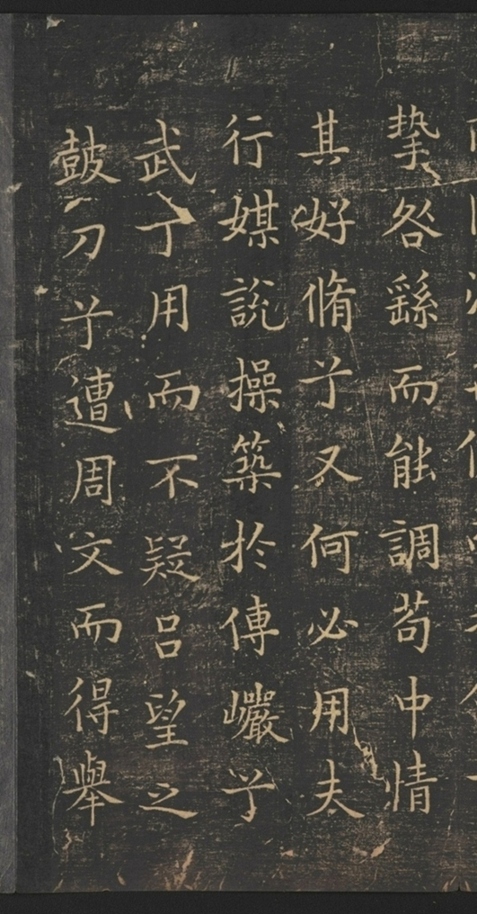 摯咎繇而能調苟中情
其好脩兮又何必用夫
行媒說操築於傅巖兮
武丁用而不疑呂望之
鼓刀兮遭周文而得舉